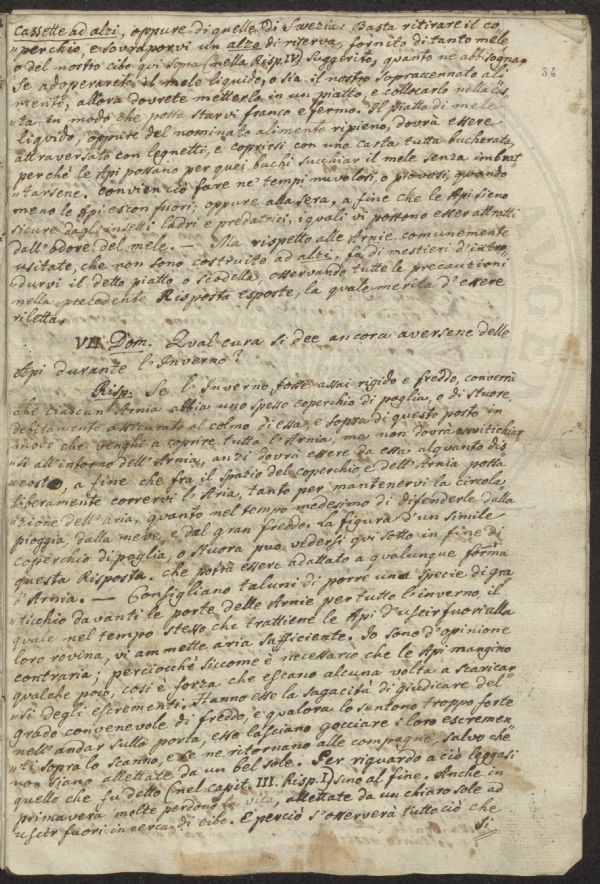 34
Cassette ad alzi, oppure di quelle di Svezia: Basta ritirare il co
"perchio, e sovraporvi un alzo di riserva, fornito di tanto mele
o del nostro cibo qui sopra (nella Resp. IV) suggerito, quanto ne abbisogna.
Se adoperarete il mele liquido, o sia il nostro sopracennato ali
"mento, allora dovrete metterlo in un piatto, e collocarlo nella ces
"ta in modo che possa starvi franco e fermo. Il piatto di mele
liquido, oppure del nominato alimento ripieno, dovrà essere
attraversato con legnetti, e coprirsi con una carta tutta bucherata,
perchè le Api possano per quei buchi succhiar il mele senza imbrat
"tarsene, convien ciò fare ne' tempi nuvolosi, o piovosi, quando
meno le Api escon fuori, oppure alla sera, a fine che le Api sieno
sicure dagli insetti ladri e predatrici, i quali vi possono esser attratti
dall'odore del mele. — Ma rispetto alle Arnie comunemente
usitate, che non sono costruite ad alzi, fa di mestieri d'intro
"durvi il detto piatto o scodella, osservando tutte le precauzioni
nella precedente Risposta esposte, la quale merita d'essere
riletta.
VII. Dom. Qual cura si dee ancora aversene delle
Api durante l'Inverno?
Risp. Se l'Inverno fosse assai rigido e freddo, converrà
che ciascun' Arnia abbia uno spesso coperchio di paglia, o di stuore,
debitamente assicurato al colmo di essa, e sopra di questo posto in
modo che venghi a coprire tutta l'Arnia, ma non dovrà avvitichiar
"si all'intorno dell'Arnia, anzi dovrà essere da essa alquanto dis
"costo, a fine che fra il spazio del coperchio e dell'Arnia possa
liberamente corrervi l'Aria, tanto per mantenervi la circola
"zione dell'aria, quanto nel tempo medesimo di difenderle dalla
pioggia, dalla neve, e dal gran freddo. La figura d'un simile
coperchio di paglia, o stuora può vedersi qui sotto in fine di
questa Risposta. che potrà essere adattato a qualunque forma
d'Arnia. — Consigliano taluni di porre una specie di gra
"ticchio davanti le porte delle Arnie per tutto l'inverno il
quale nel tempo stesso che trattiene le Api d'uscir fuori alla
loro rovina, vi ammette aria sufficiente. Io sono d'opinione
contraria; perciocchè siccome è necessario che le Api mangino
qualche poco, così è forza che escano alcuna volta a scaricar
"si degli escrementi. Hanno esse la sagacità di giudicare del
grado convenevole di freddo, e qualora lo sentono troppo forte
nell'andar sulla porta, esse lasciano gocciare i loro escremen
"ti sopra lo scanno, e se ne ritornano alle compagne, salvo che
non siano allettate da un bel sole. Per riguardo a ciò leggasi
quello che fu detto (nel capit. III. Risp. I) sino al fine. Anche in
primavera molte perdono la vita, allettate da un chiaro sole ad
uscir fuori in cerca di cibo. E perciò s'osserverà tutto ciò che
si